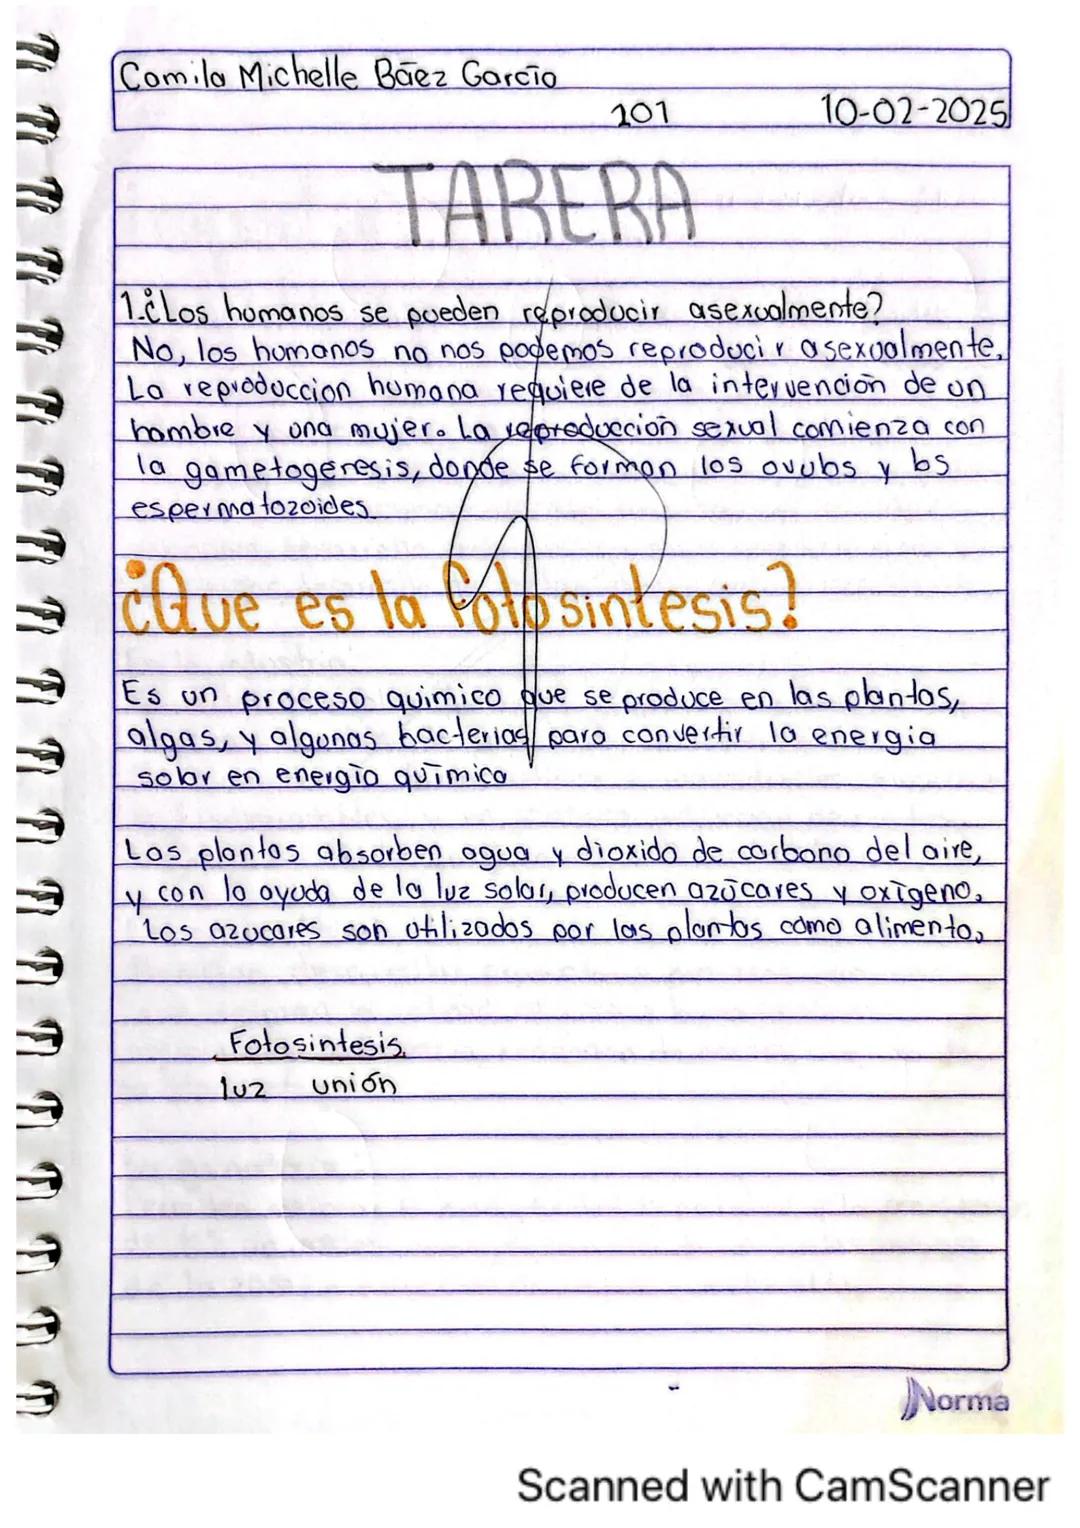 Camila Michelle Báez García
201 10-02-2025
TAREA
1.¿Los humanos se pueden reproducir asexualmente?
No, los humanos no nos podemos reproducir asexualmente.
La reproduccion humana requiere de la intervención de un
hombre y una mujer. La reproducción sexual comienza con
la gametogenesis, donde se forman los ovulos y los
espermatozoides.
¿Que es la fotosintesis?
Es un proceso quimico que se produce en las plantas,
algas, y algunas bacterias para convertir la energia
solar en energía química
Las plantas absorben agua y dioxido de carbono del aire,
y con la ayuda de la luz solar, producen azúcares y oxígeno.
Los azucares son utilizados por las plantas como alimento.
Fotosintesis.
luz unión
Norma
Scanned with CamScanner